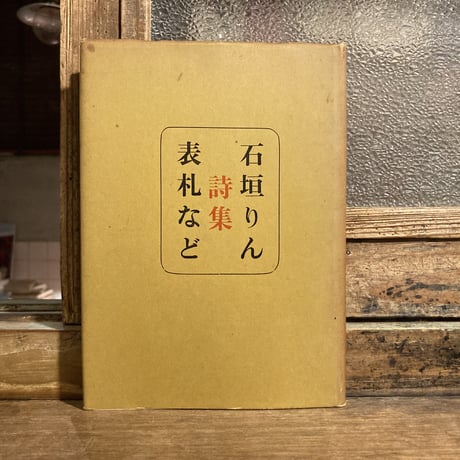 石垣りん
詩集
表札など